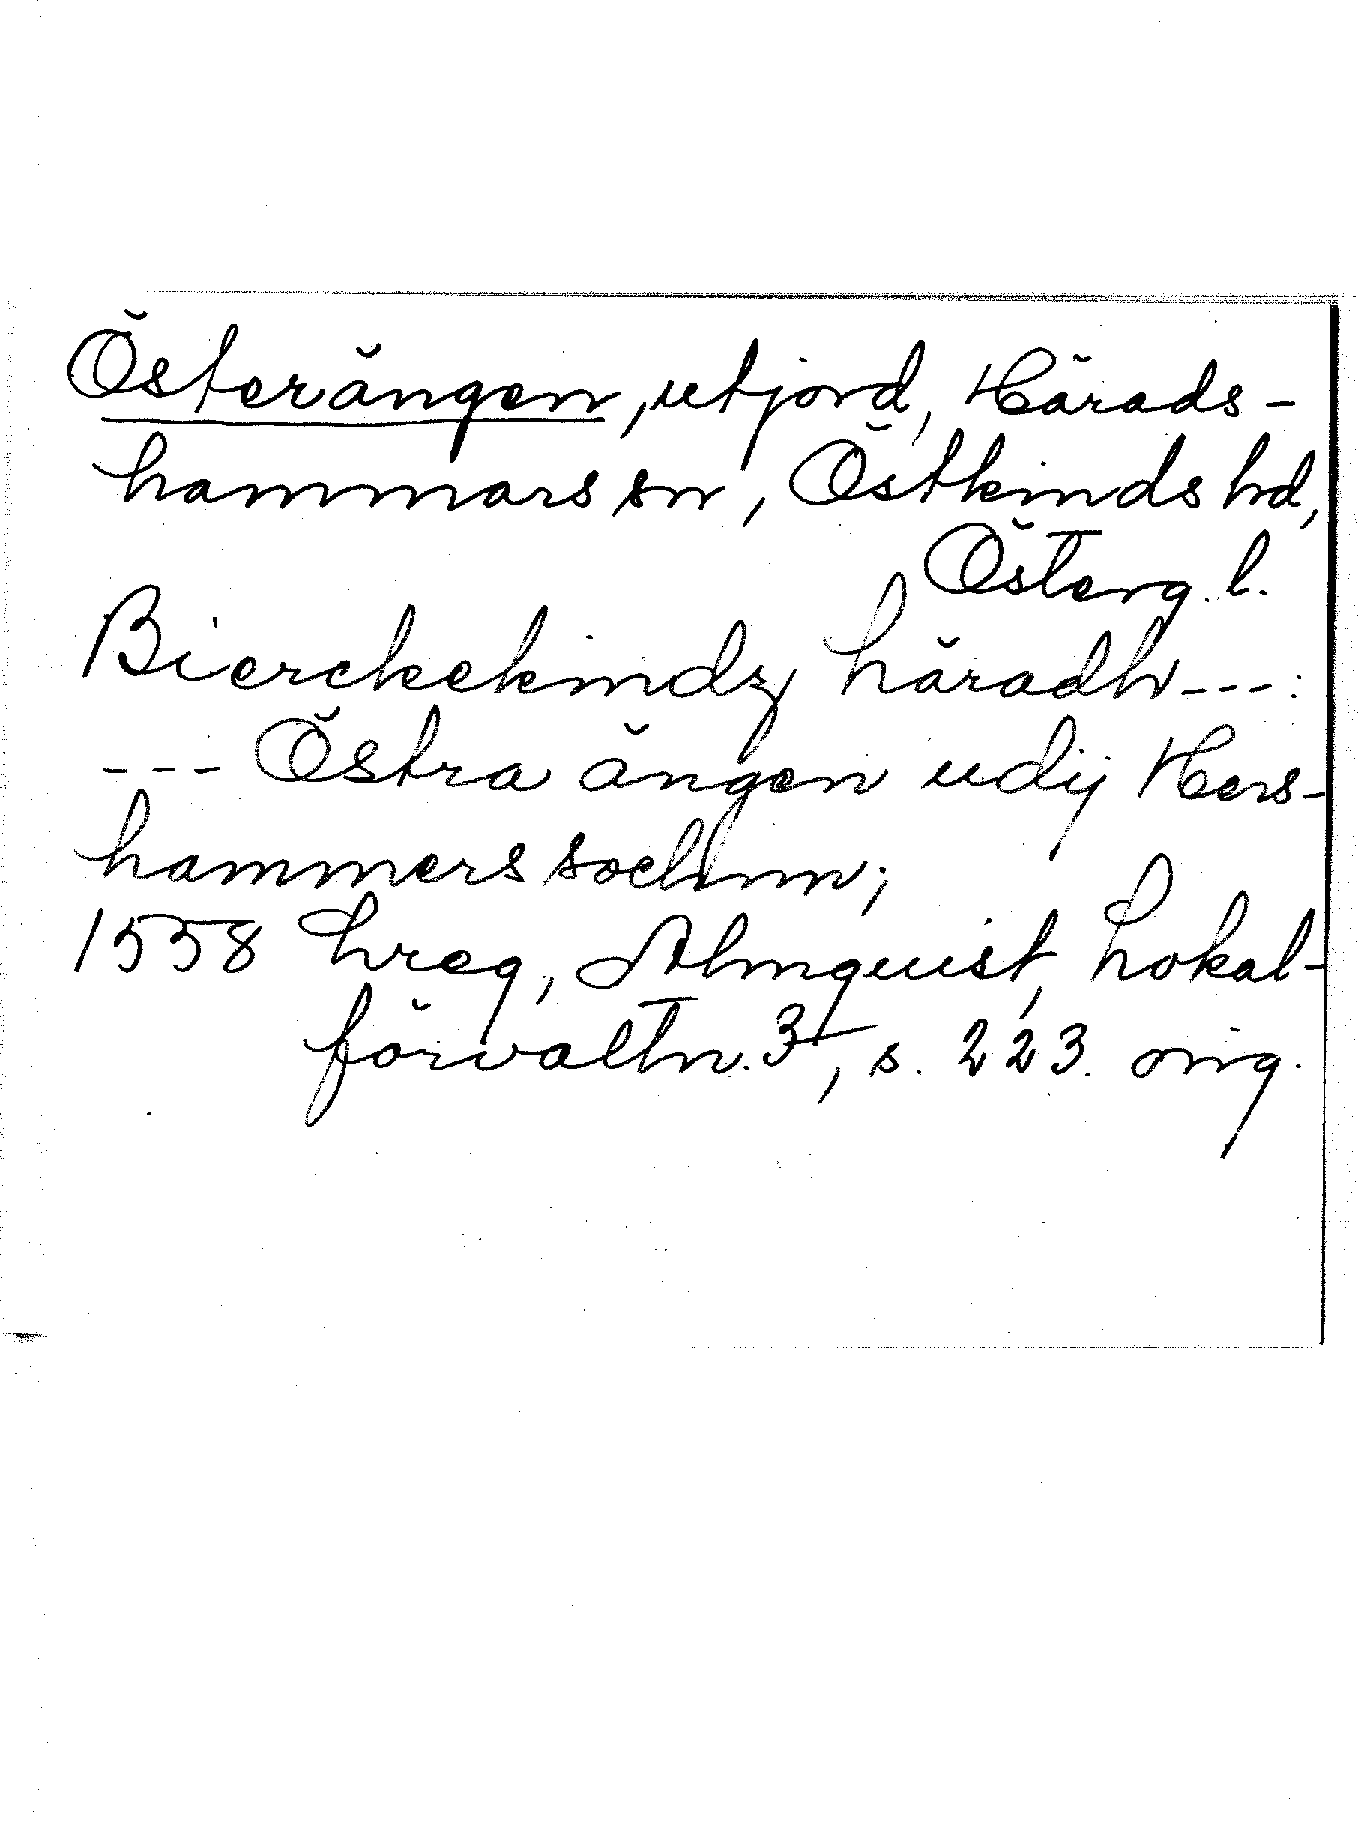 Österängen, utjord, Härads-
hammars sn, Östkinds hd,
Österg. l.
Bierckekindz häradh ---:
--- Östra ängen udij Hers-
hammers sochnn;
1558 Lreg, Almquist, Lokal-
förvaltn. 3, s. 223. orig.